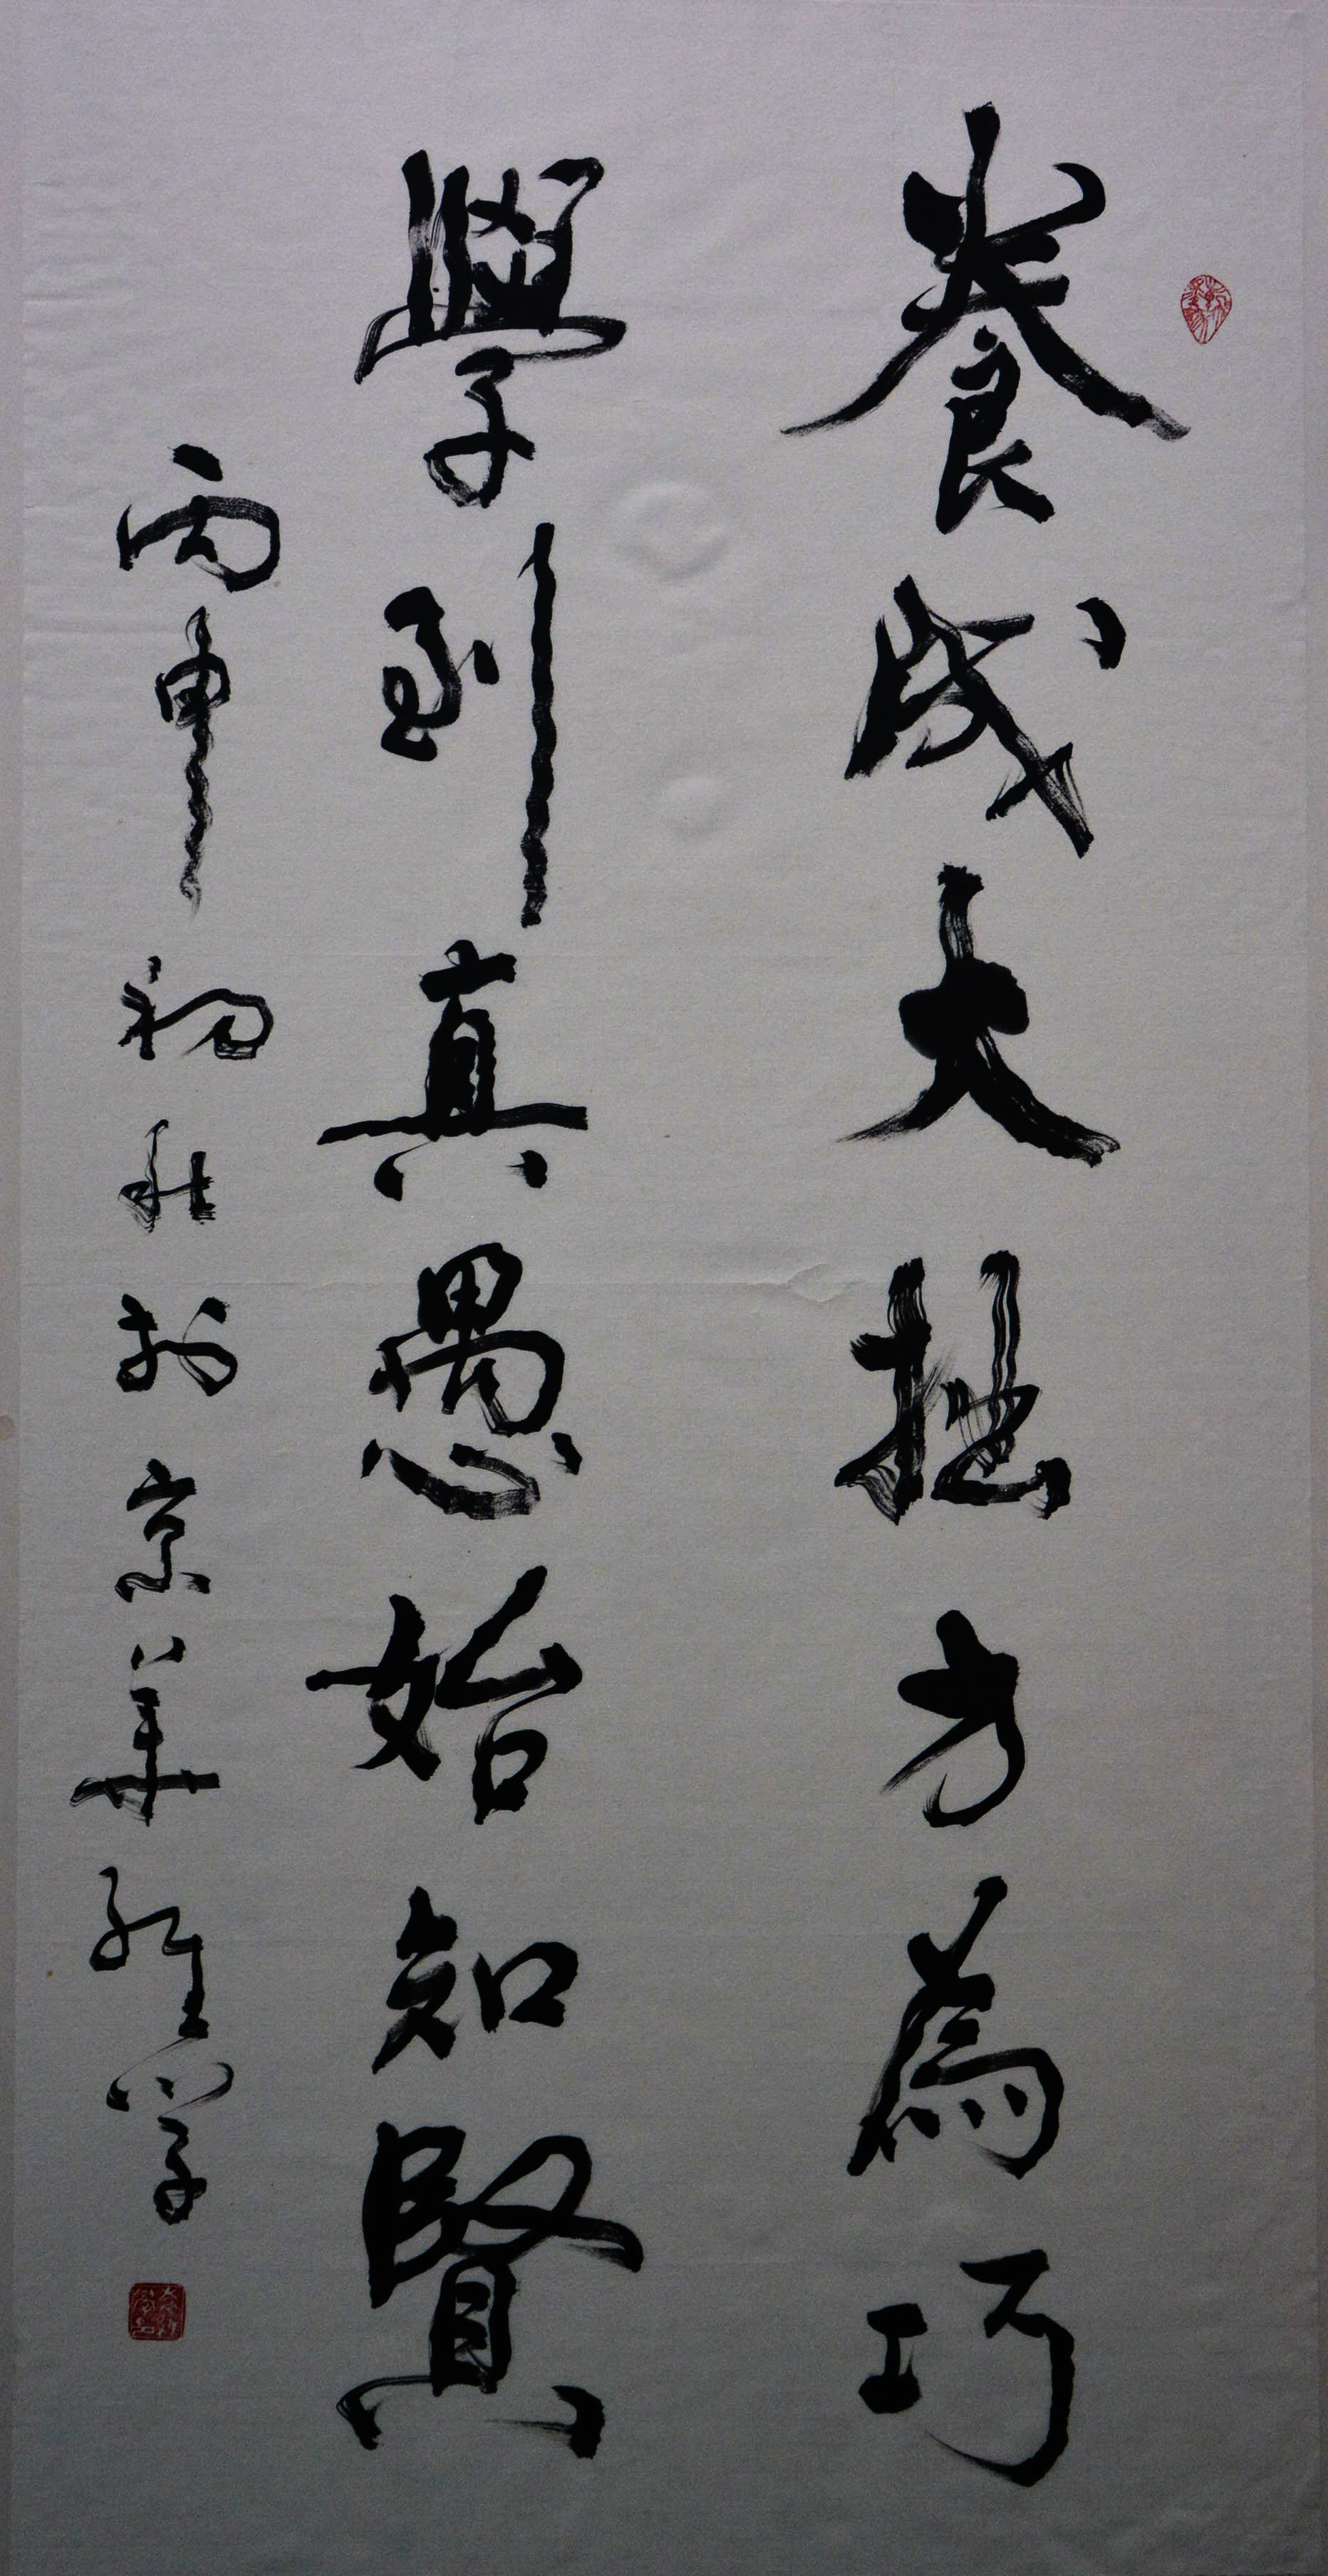 養成大拙方為巧
學到真愚始知賢
丙申初秋於京華 學